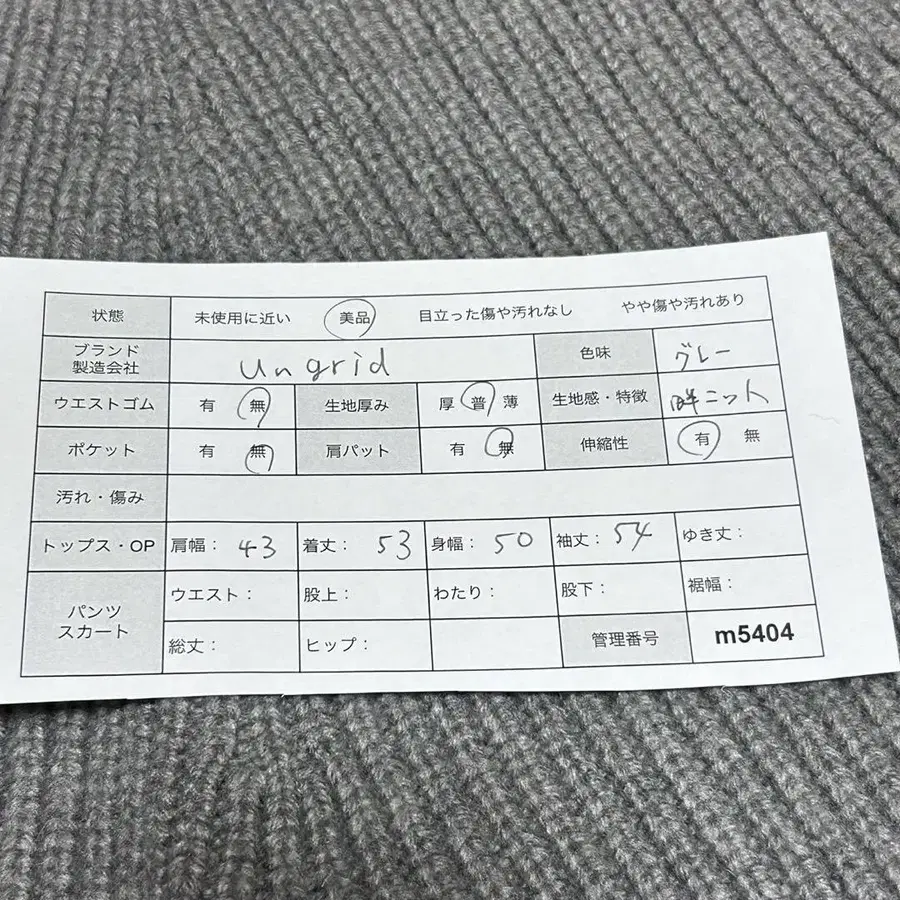 状態 未使用に近い 美品 目立った傷や汚れなし やや傷や汚れあり
ブランド 製造会社 ungrid 色味 グレー
ウエストゴム 有 無 生地厚み 厚 普 薄 生地感・特徴 畔ニット
ポケット 有 無 肩パット 有 無 伸縮性 有 無
汚れ・傷み
トップス・OP 肩幅： 43 着丈： 53 身幅： 50 袖丈： 54 ゆき丈：
パンツ スカート ウエスト： 股上： わたり： 股下： 裾幅：
総丈： ヒップ： 管理番号 m5404